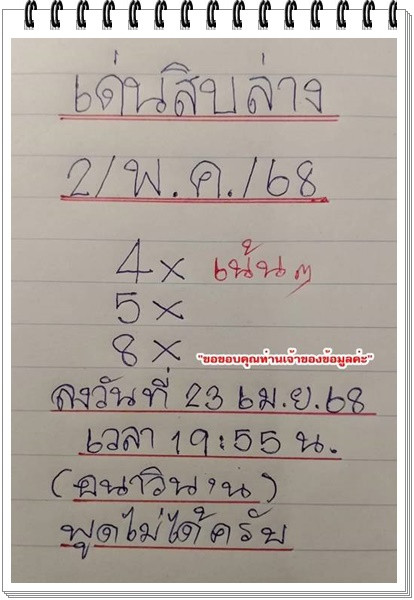 เด่นสิบล่าง
2/พ.ค./68
4x เน้นๆ
5x
8x
"ขอขอบคุณท่านเจ้าของข้อมูลค่ะ"
ลงวันที่ 23 เม.ย.68
เวลา 19:55 น.
พูดไม่ได้ครับ